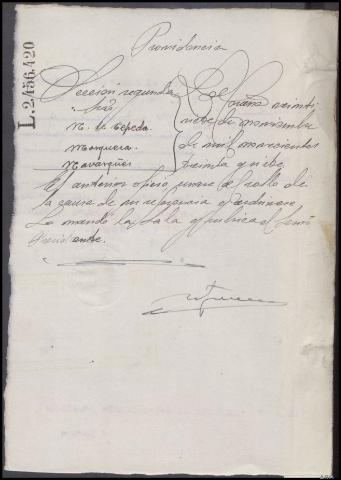 L.2,456,420
Providencia
Sección segunda
Sres
M. de Cepeda.
Mosquera.
Navargües
veinti
nueve de noviembre
de mil novecientos
treinta y nueve
El anterior oficio, únase al rollo de
la causa de su referencia y archívese
Lo mandó la Sala y rubrica el Señor
Presidente.